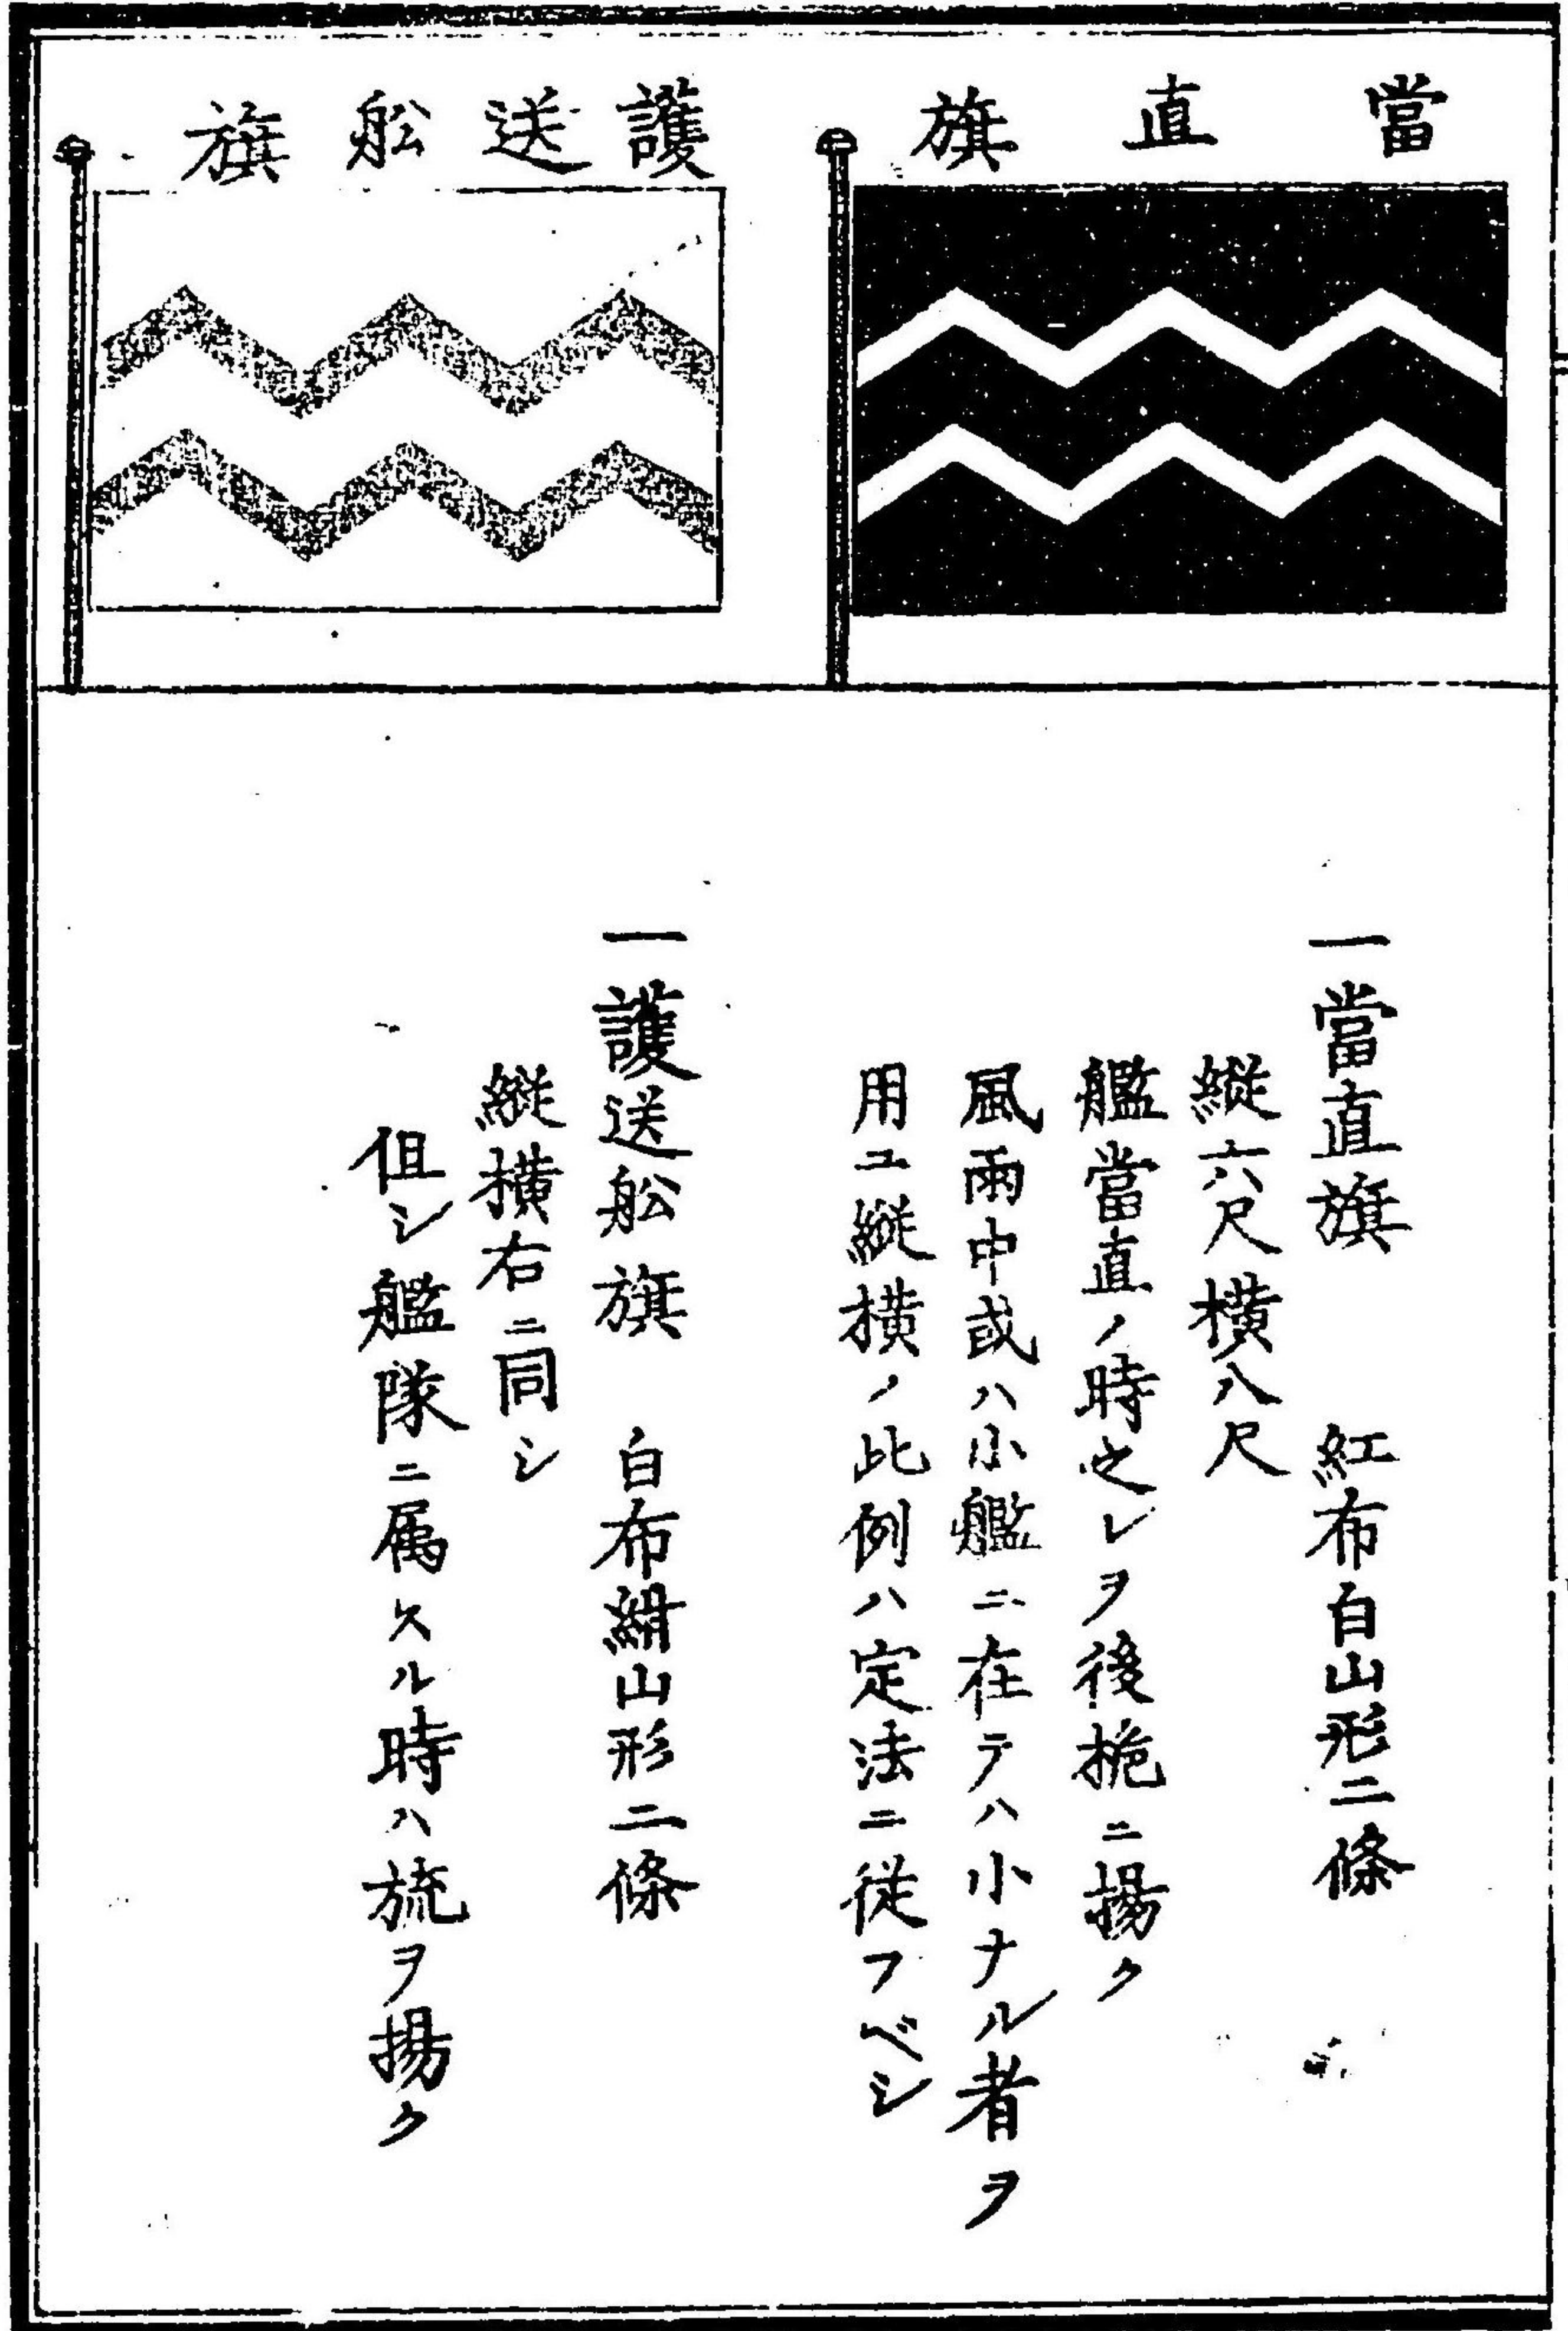 當直旗
護送舩旗
一當直旗 紅布白山形二條
縦六尺横八尺
艦當直ノ時之レヲ後桅ニ揚ク
風雨中或ハ小艦ニ在テハ小ナル者ヲ
用ユ縦横ノ此例ハ定法ニ從フベシ
一護送舩旗 白布緗山形二條
縦横右ニ同シ
伹シ艦隊ニ属スル時ハ旒ヲ揚ク